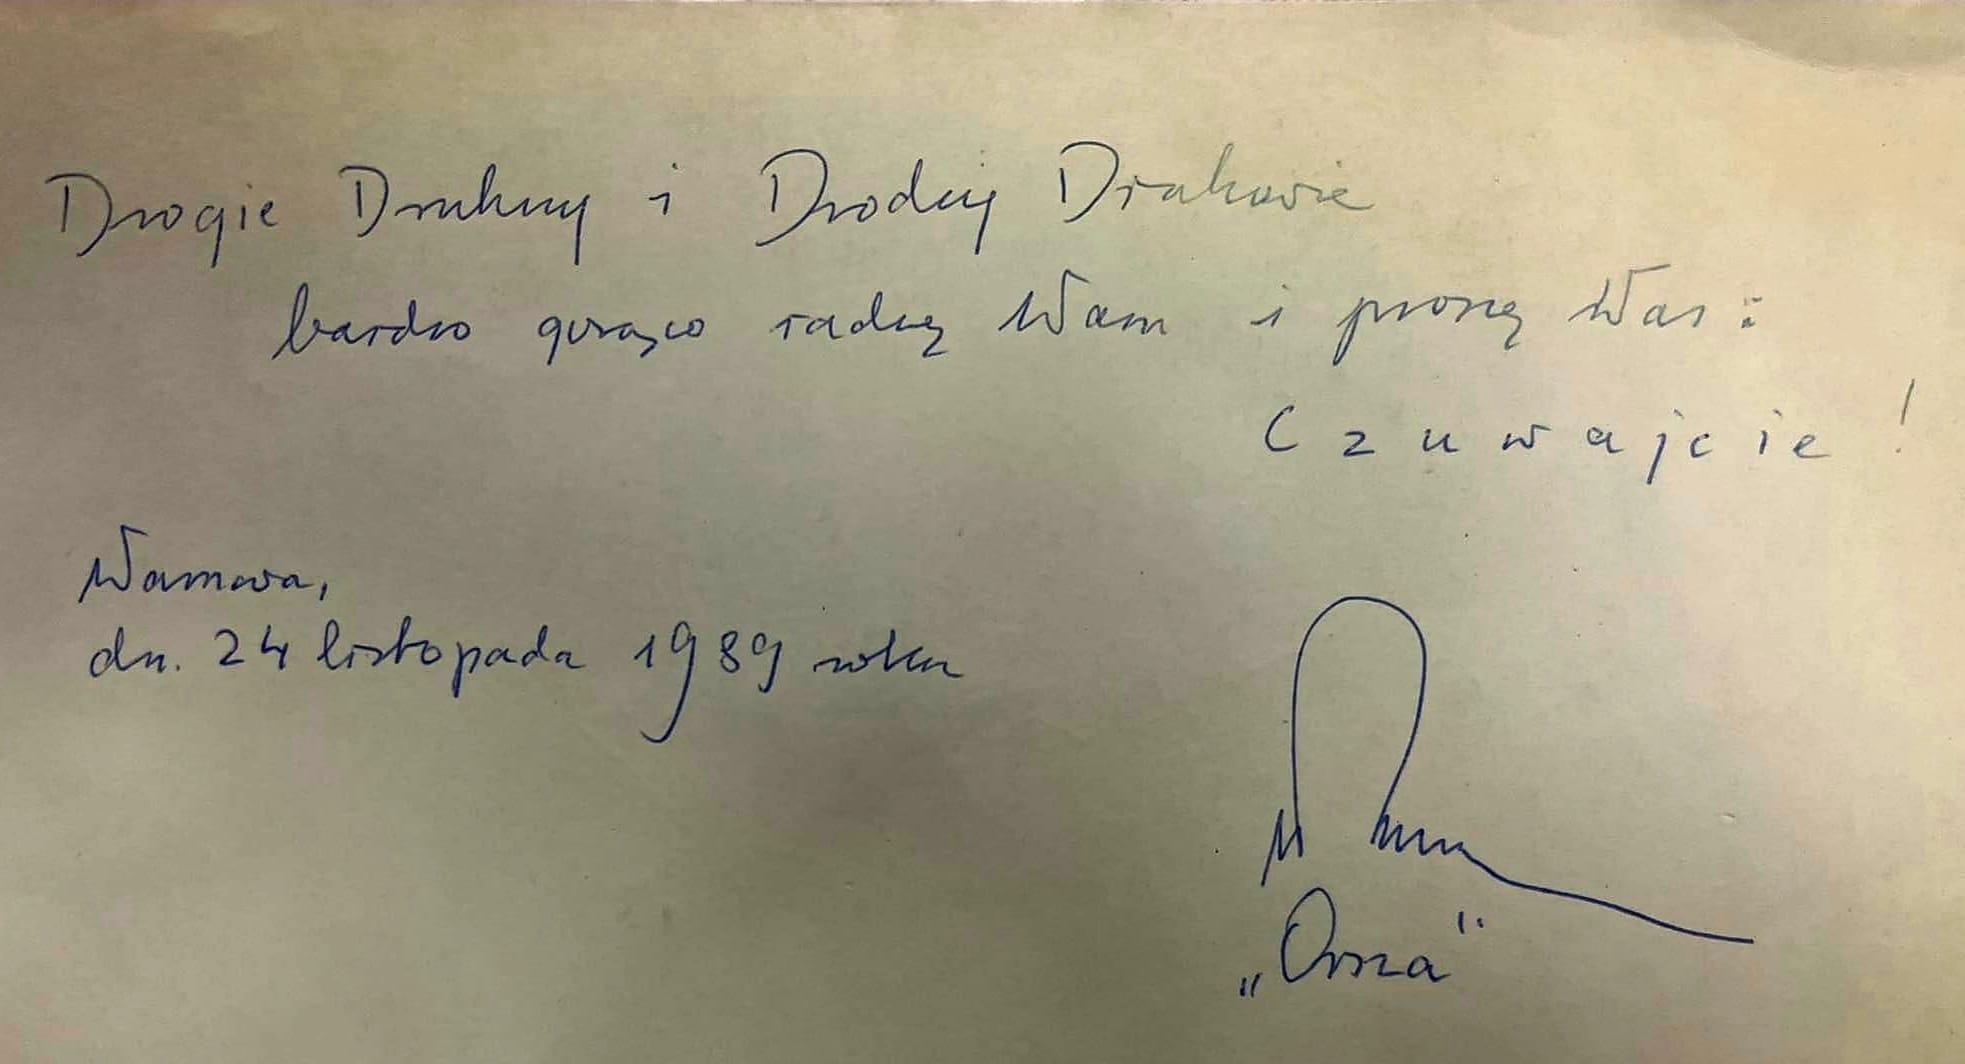 Drogie Druhny i Drodzy Druhowie
bardzo gorąco radzę Wam i proszę Was:
Czuwajcie!
Warszawa,
dn. 24 listopada 1989 roku
„Orsza”